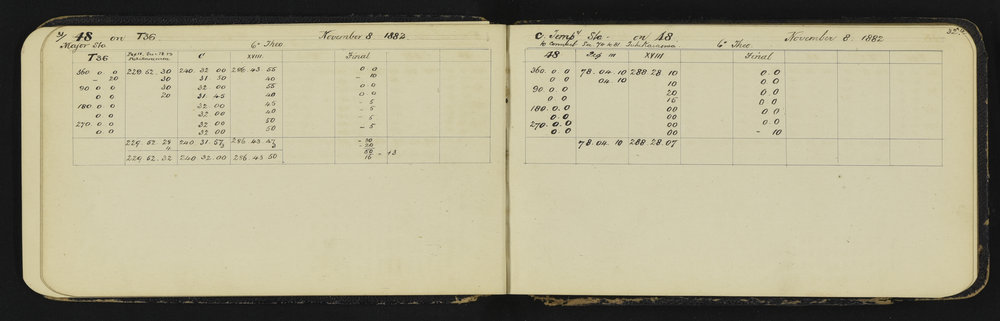 31 48 on T36 November 8 1882
Major Sta 6" Theo
T36 C XVIII Final
360 0 0 229 52 30 240 32 00 286 43 55 0 0
- 20 30 31 50 40 - 10
90 0 0 30 32 00 55 0 0
0 0 20 31 45 40 0 0
180 0 0 32 00 45 - 5
0 0 32 00 40 - 5
270 0 0 32 00 50 - 5
0 0 32 00 50 - 5
229 52 28 240 31 57 286 43 47 - 30
- 20
229 52 32 240 32 00 286 43 50 50
16 + 3
C Temp'y Sta - on 48 November 8 1882
6" Theo
48 Peg III XVIII Final
360 0 0 78 04 10 288 28 10 0 0
0 0 04 10 10 0 0
90 0 0 20 0 0
0 0 15 0 0
180 0 0 00 0 0
0 0 00 0 0
270 0 0 00 0 0
0 0 00 - 10
78 04 10 288 28 07